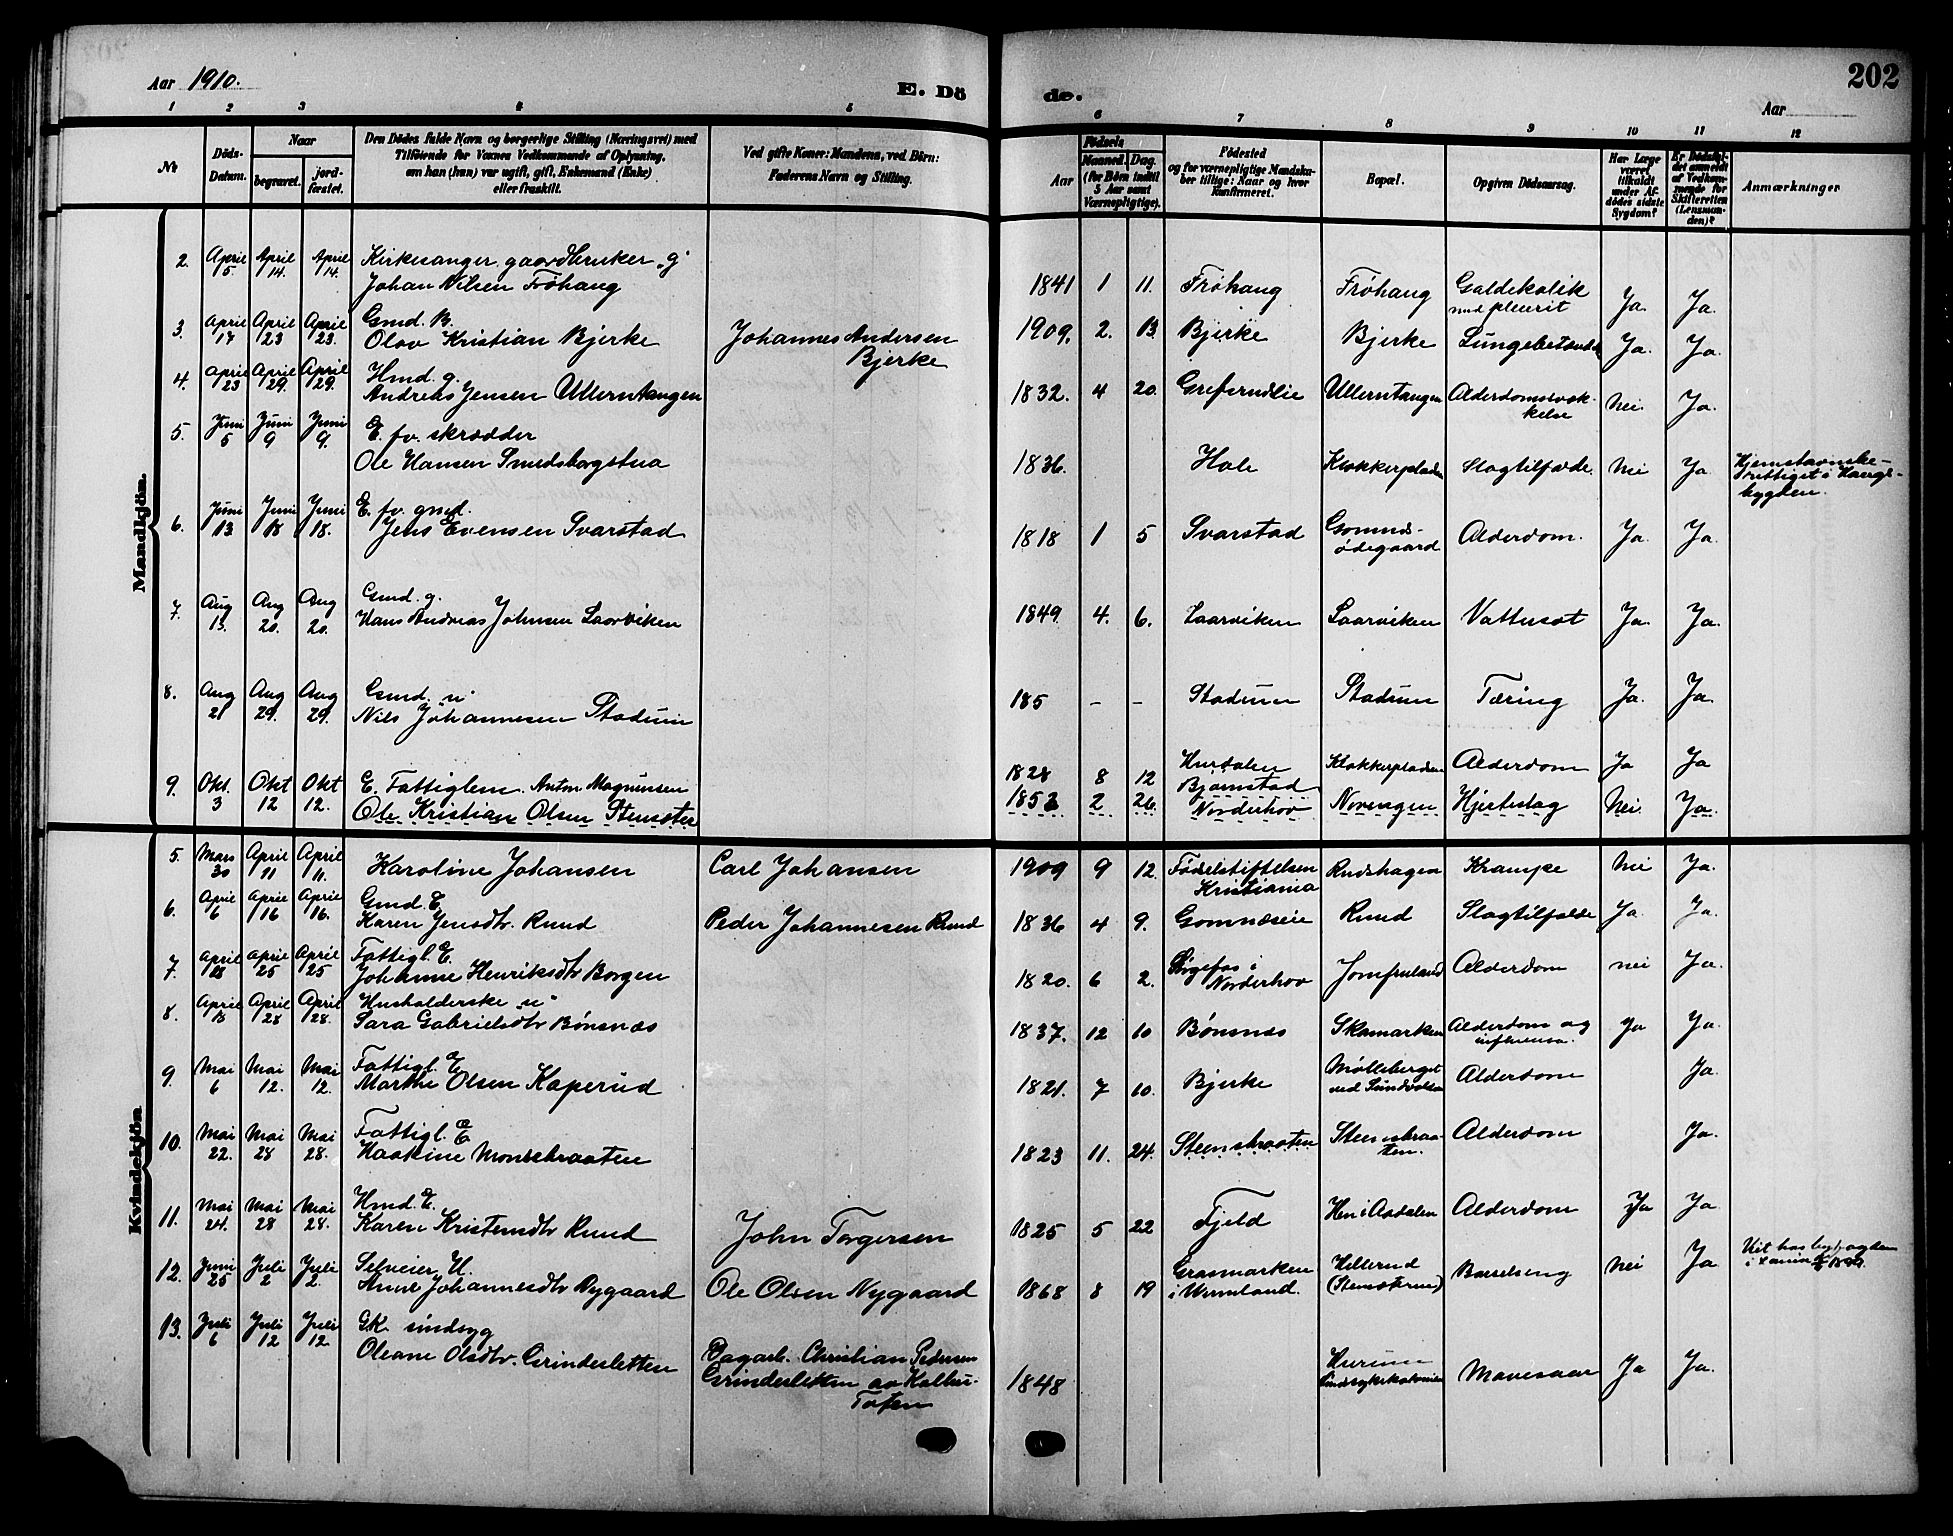 Aar 1910.
E. Dö
de.
202
Aar
1 2 3 4 5 6 7 8 9 10 11 12
No
Döds-
Datum.
Naar
begravet.
jord-
fæstet.
Den Dödes fulde Navn og borgerlige Stilling (Næringsvei) med
Tilföiende for Voxnes Vedkommende af Oplysning,
om han (hun) var ugift, gift, Enkemand (Enke)
eller fraskilt.
Ved gifte Koner: Mandens, ved Börn:
Faderens Navn og Stilling.
Födsels
Aar
Maaned.
Dag.
(for Börn indtil
5 Aar samt
Værnepligtige).
Födested
og for værnepligtige Mandska-
ber tillige: Naar og hvor
Konfirmeret.
Bopæl.
Opgiven Dödsaarsag.
Har Læge
været
tilkaldt
under Af-
dödes sidste
Sygdom?
Er Dödsfal-
det anmeldt
af Vedkom-
mende for
Skifteretten
(Lensman-
den)?
Anmærkninger
Mandkjön.
2. April 5 April 14. April 14. Kirkesanger, gaardbruker "g"
Johan Nilsen Frøhaug 1841 1 11. Frøhaug Frøhaug Galdekolik
med pleurit Ja. Ja.
3. April 17 April 23 April 23. Gmd. B.
Olav Kristian Bjerke Johannes Andersen
Bjerke 1909. 2. 13. Bjerke Bjerke Lungebetændels Ja. Ja.
4. April 23 April 29. April 29. Hmd. g.
Andreas Jensen Ullerntangen 1832. 4 20. Grefsrudlie Ullerntangen Alderdomssvæk-
kelse Nei. Ja.
5. Juni 5 Juni 9 Juni 9. E. fv. skrædder
Ole Hansen Smedsborgstua 1836. Hole Klokkerpladsen Slagtilfælde. Nei Ja Hjemstavnsbe-
rettiget i Haugs-
bygden.
6. Juni 13 Juni 18 Juni 18. E. fv. gmd.
Jens Evensen Svarstad 1818 1 5 Svarstad Gomnes-
ødegaard Alderdom. Ja. Ja.
7. Aug 13. Aug 20. Aug 20. Gmd. g.
Hans Andreas Johnsen Laarviken 1849. 4. 6. Laarviken Laarviken Vattersot Ja. Ja.
8. Aug 21 Aug 29. Aug 29. Gmd. u"
Nils Johannesen Stadum 185 - - Stadum Stadum Tæring Ja. Ja.
9. Okt. 3 Okt 12 Okt 12. E. Fattiglem. Anton Magnussen 1828 8 12 Hurdalen Klokkerpladsen Alderdom Ja Ja
Ole Kristian Olsen Stensæter 1853 2 26. Bjørnstad
Norderhov Norengen Hjerteslag Nei. Ja.
Kvindekjön
5. Mars 30 April 11 April 11. Karoline Johansen Carl Johansen 1909 9 12. Fødselstiftelsen
Kristiania Rudshagen Krampe Nei Ja.
6. April 6 April 16 April 16. Gmd. E.
Karen Jensdtr. Rund Peder Johannesen Rund 1836 4 9. Gomnæseie Rund Slagtilfælde Ja. Ja.
7. April 18 April 25 April 25 Fattigl. E.
Johanne Henriksdtr Borgen 1820. 6 2. i
Norderhov Jomfruland Alderdom nei Ja.
8. April 18 April 28 April 28. Husholderske "u"
Sara Gabrielsdtr Bønsnæs 1837. 12 10 Bønsnæs Skamarken Alderdom og
influensa. Ja Ja.
9. Mai 6 Mai 12. Mai 12. Fattigl. E.
Marthe Olsen Kaperud 1821. 7 10. Bjerke Mølleberget
ved Sundvolden Alderdom Ja.
10. Mai 22. Mai 28 Mai 28. Fattigl. E
Haakine Monsebraaten 1823 11. 24. Steensbraaten Steensbraa-
ten. Alderdom Ja.
11. Mai 24. Mai 28 Mai 28. Hmd. E.
Karen Kristensdtr Rund John Torgersen 1825 5 22 Fjeld Hen i Aadalen Alderdom Ja Ja
12. Juni 25 Juli 2 Juli 2. Selveier U.
Anne Johannesdtr Nygaard Ole Olsen Nygaard 1868 8 19 Grasmarken
i Wermland. Hellerud
(Stensæterne) Barselseng Nei Ja
13. Juli 6 Juli 12 Juli 12 GK. sindsyg
Oleane Olsdtr. Grindersletten Dagarb. Christian Pedersen
Grindersletten av Kolbu-
Toten 1848 Hurum
Sindsykekolonien Mavesaar Ja Ja.